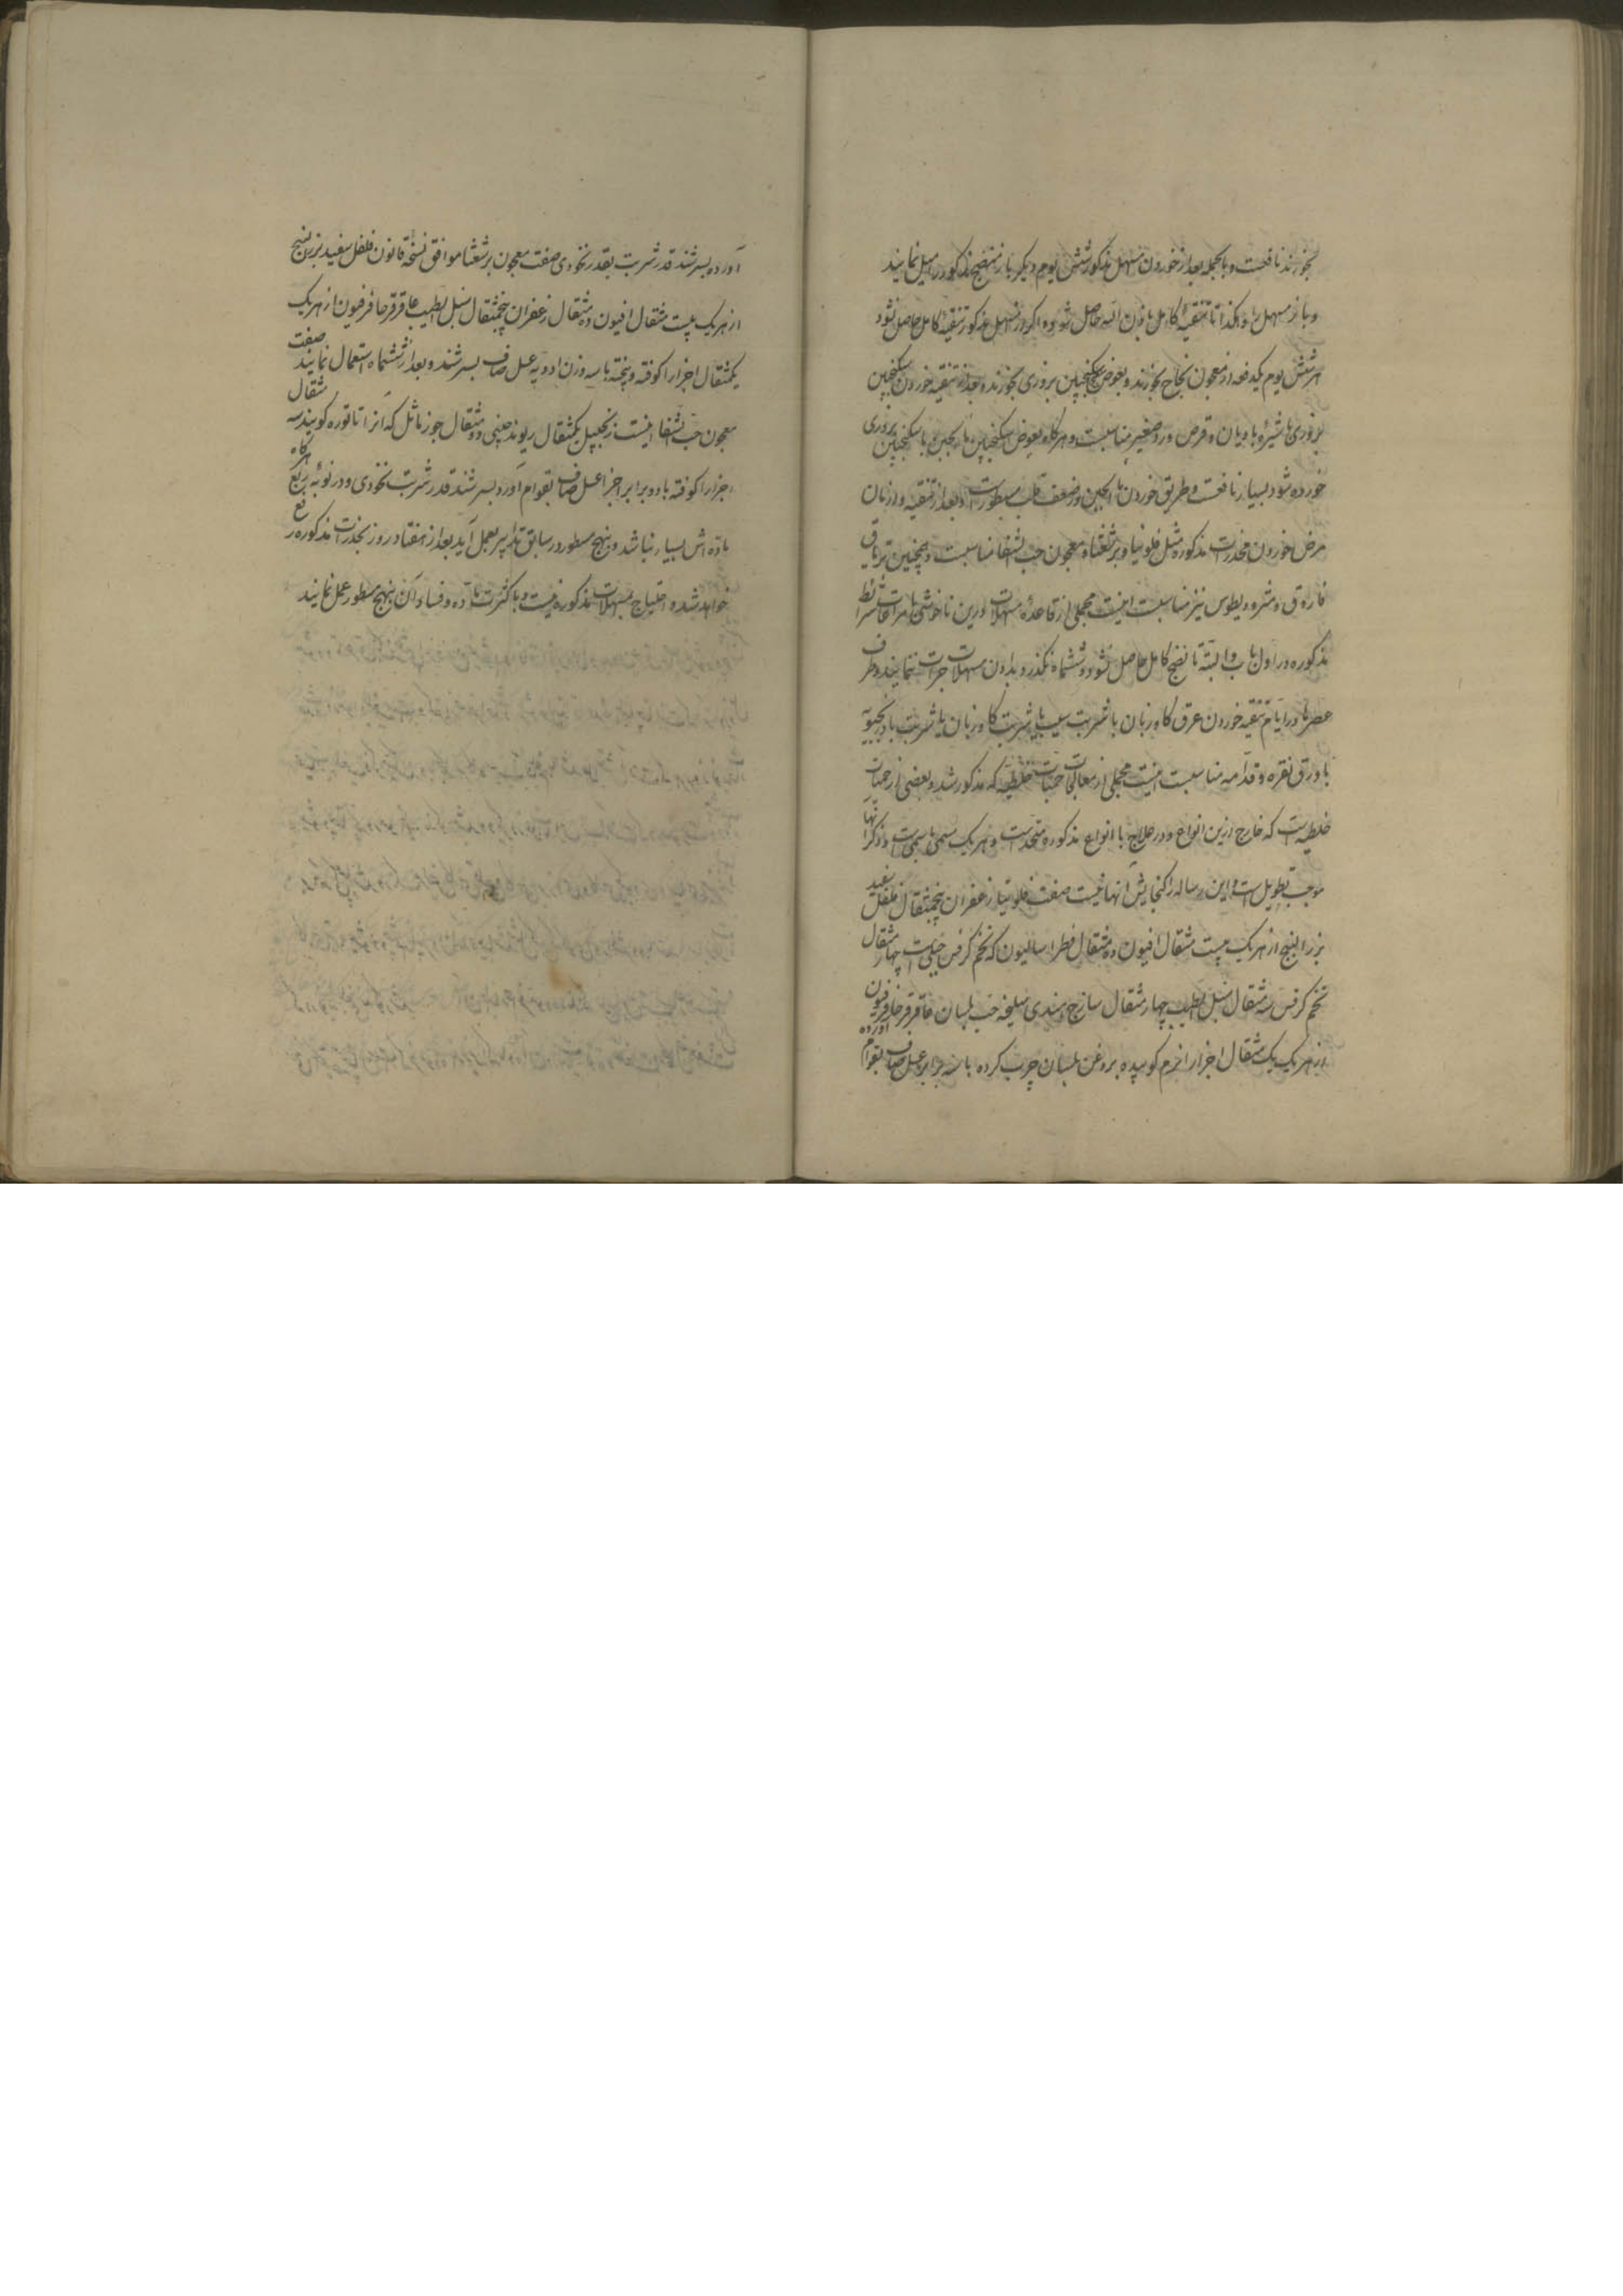 بخورند نافعست و بالجمله بعد از خوردن مسهل مذکور شش یوم دیگر باز منضج مذکور را میل نمایند
و باز مسهل را و هکذا تا تنقیهٔ کامل باذن الله حاصل شود و اگر از مسهل مذکور تنقیهٔ کامل حاصل نشود
هر شش یوم یکدفعه از معجون نجاح بخورند و بعوض سکنجبین بزوری بخورند و بعد از تنقیه خوردن سکنجبین
بزوری با شیرهٔ بادیان و قرص ورد صغیر مناسبست و هرگاه بعوض سکنجبین ماء الجبن با سکنجبین بزوری
خورده شود بسیار نافعست و طریق خوردن ماء الجبن در ضعف قلب مسطورست و بعد از تنقیه و ازمان
مرض خوردن مخدرات مذکوره مثل فلونیا و برشعثا و معجون حب الشفا مناسبست و همچنین تریاق
فاروق و مثرودیطوس نیز مناسبست اینست مجملی از قاعدهٔ مسهلات درین ناخوشی با مراعات شرائط
مذکوره در اول باب و البته تا نضج کامل حاصل نشود و ششماه نگذرد بدادن مسهلات جرات ننمایند و طرف
عصرها در ایام تنقیه خوردن عرق گاوزبان با شربت سیب یا شربت گاوزبان یا شربت بادرنجبویه
با ورق نقره و قدامه مناسبست اینست مجملی از معالجات حمیات خلطیه که مذکور شد و بعضی از حمیات
خلطیه است که خارج ازین انواع و در علاج با انواع مذکوره متحدست و هر یک مسمی باسمی است و ذکر آنها
موجب تطویل است و این رساله را گنجایش آنها نیست صفت فلونیا زعفران پنجمثقال فلفل سفید
بزر البنج از هر یک بیست مثقال افیون ده مثقال فطراسالیون که تخم کرفس جبلی است چهار مثقال
تخم کرفس سه مثقال سنبل الطیب چهار مثقال ساذج هندی سلیخه حب بلسان عاقرقرحا فرفیون
از هر یک یک مثقال اجزا را نرم کوبیده بروغن بلسان چرب کرده با سه برابر عسل صاف بقوام آورده
آورده بسرشند قدر شربت بقدر نخودی صفت معجون برشعثا موافق نسخهٔ قانون فلفل سفید بزر البنج
از هر یک بیست مثقال افیون ده مثقال زعفران پنجمثقال سنبل الطیب عاقرقرحا فرفیون از هر یک
یکمثقال اجزا را کوفته و بیخته با سه وزن ادویه عسل صاف بسرشند و بعد از ششماه استعمال نمایند صفت
معجون حب الشفا اینست زنجبیل یکمثقال ریوند چینی دو مثقال جوز ماثل که آنرا تاتوره گویند سه مثقال
اجزا را کوفته با دو برابر اجزا عسل صاف بقوام آورده بسرشند قدر شربت نخودی و در نوبهٔ ربع هرگاه
ماده اش بسیار نباشد و بنهج مسطور در سابق تدابیر بعمل آید بعد از هفتاد روز بمخدرات مذکوره رفع
خواهد شد و احتیاج بمسهلات مذکوره نیست و با کثرت ماده و فساد آن بنهج مسطور عمل نمایند